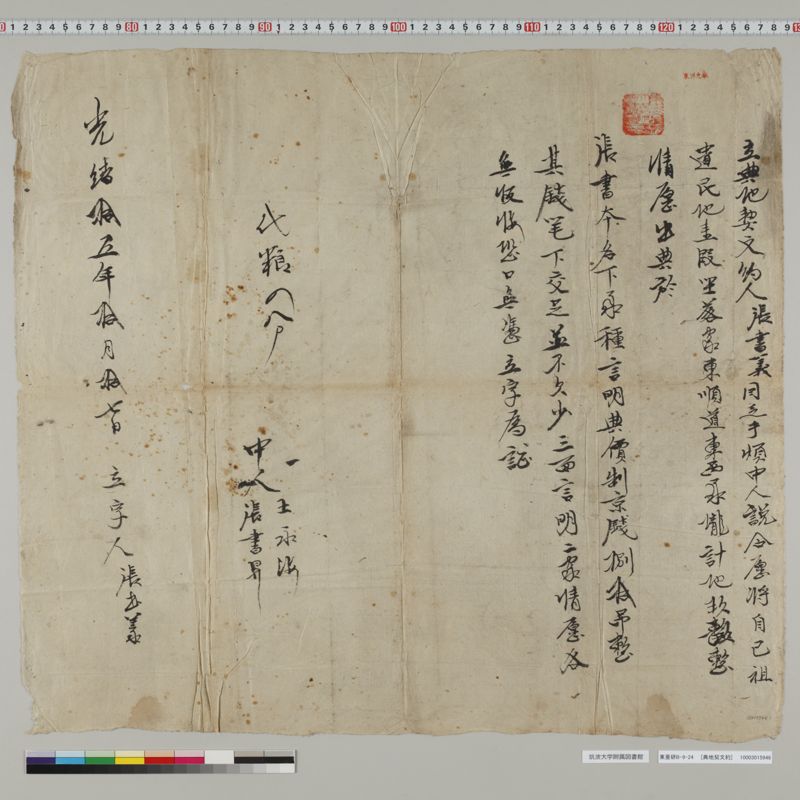 立典地契文約人張書義同子手順中人說合愿將自己祖
遺民地壹段坐落家東順道東西承壠計地拾畝整
情愿出典於
張書本名下承種言明典價制京錢捌拾吊整
其錢筆下交足並不欠少三面言明二家情愿各
無返悔恐口無憑立字為證
代粮
中人
王永海
張書昇
光緒拾五年拾月拾七日 立字人張書義
筑波大学附属図書館
東亜研B-9-24 [典地契文約] 10003015946